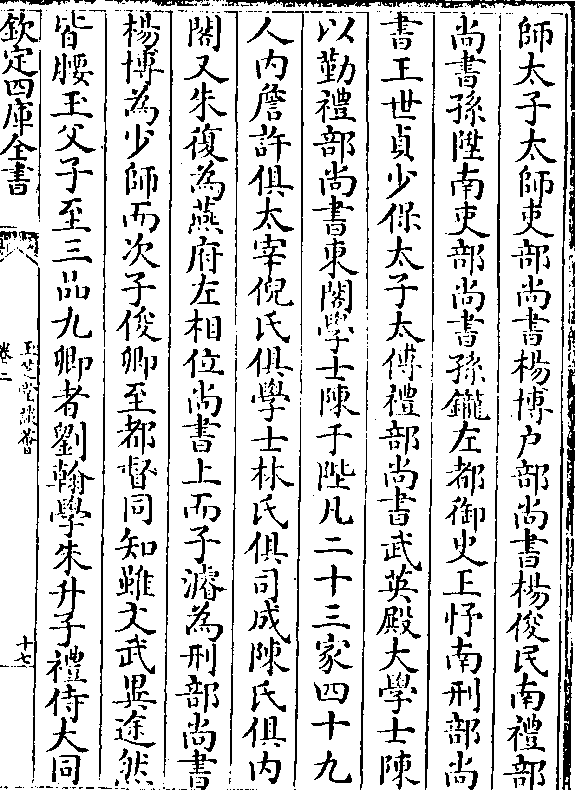 師太子太師吏部尚書楊博户部尚書楊俊民南禮部
尚書孫陞南吏部尚書孫鑨左都御史王忬南刑部尚
書王世貞少保太子太傅禮部尚書武英殿大學士陳
以勤禮部尚書東閣學士陳于陛凡二十三家四十九
人内詹許俱太宰倪氏俱學士林氏俱司成陳氏俱内
閣又朱復為燕府左相位尚書上而子濬為刑部尚書
楊博為少師而次子俊卿至都督同知雖文武異途然
皆腰玉父子至三品九卿者劉翰學朱升子禮侍大同
欽定四庫全書
玉芝堂談薈
卷二
十七